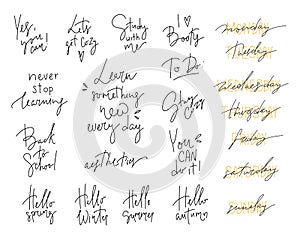 Yes,
you
can!
Let's
get Cozy
Study
with
me
I
Books
never
stop
learning
Learn
something
new
every day
To Do:
Back
to
School
aesthetics
You
CAN
do it!
Hello
spring
Hello
Winter
Hello
Summer
Hello
autumn
MONDAY
monday
Tuesday
wednesday
thursday
friday
saturday
sunday